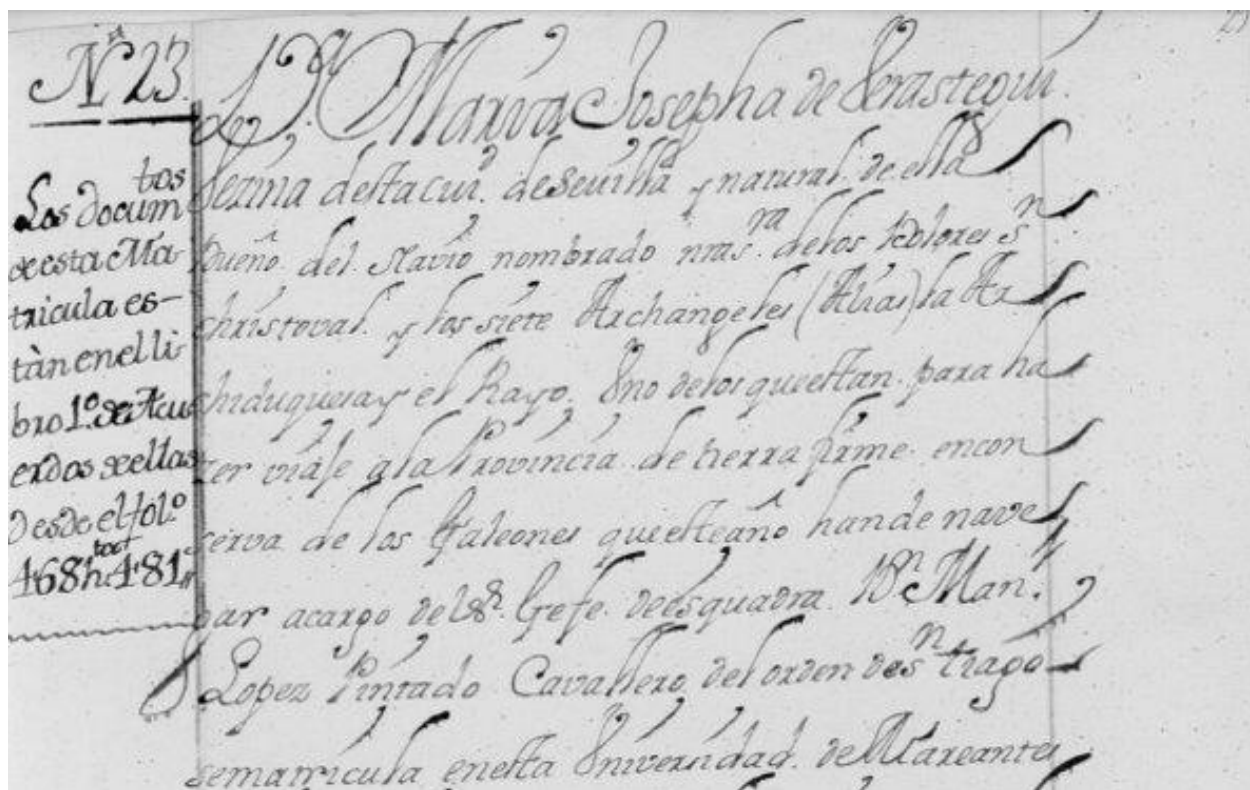 Nº 23.
Los docum^tos
de esta Ma-
tricula es-
tàn en el li-
bro 1.º de Acu
erdos de ellas
desde el fol.º
468 h^ta el 481,,
D.ª Maria Josepha de Verastegui.
Vezina desta ciu.ᵈ de Sevilla y natural de ella
Dueño del Navio nombrado nra s.ʳᵃ de los Dolores Sⁿ
Christoval y los siete Archangeles (Alias) la Ar
chiduquesa y el Rayo. Vno de los que estan para ha
zer viaje a la Provincia de tierra firme en con
serva de los Galeones que este año han de nave
gar a cargo del Sʳ. Gefe de esquadra Dⁿ Manˡ.
Lopez Pintado Cavallero del orden de Sⁿtiago
se matricula en esta Vniversidad de Mareantes